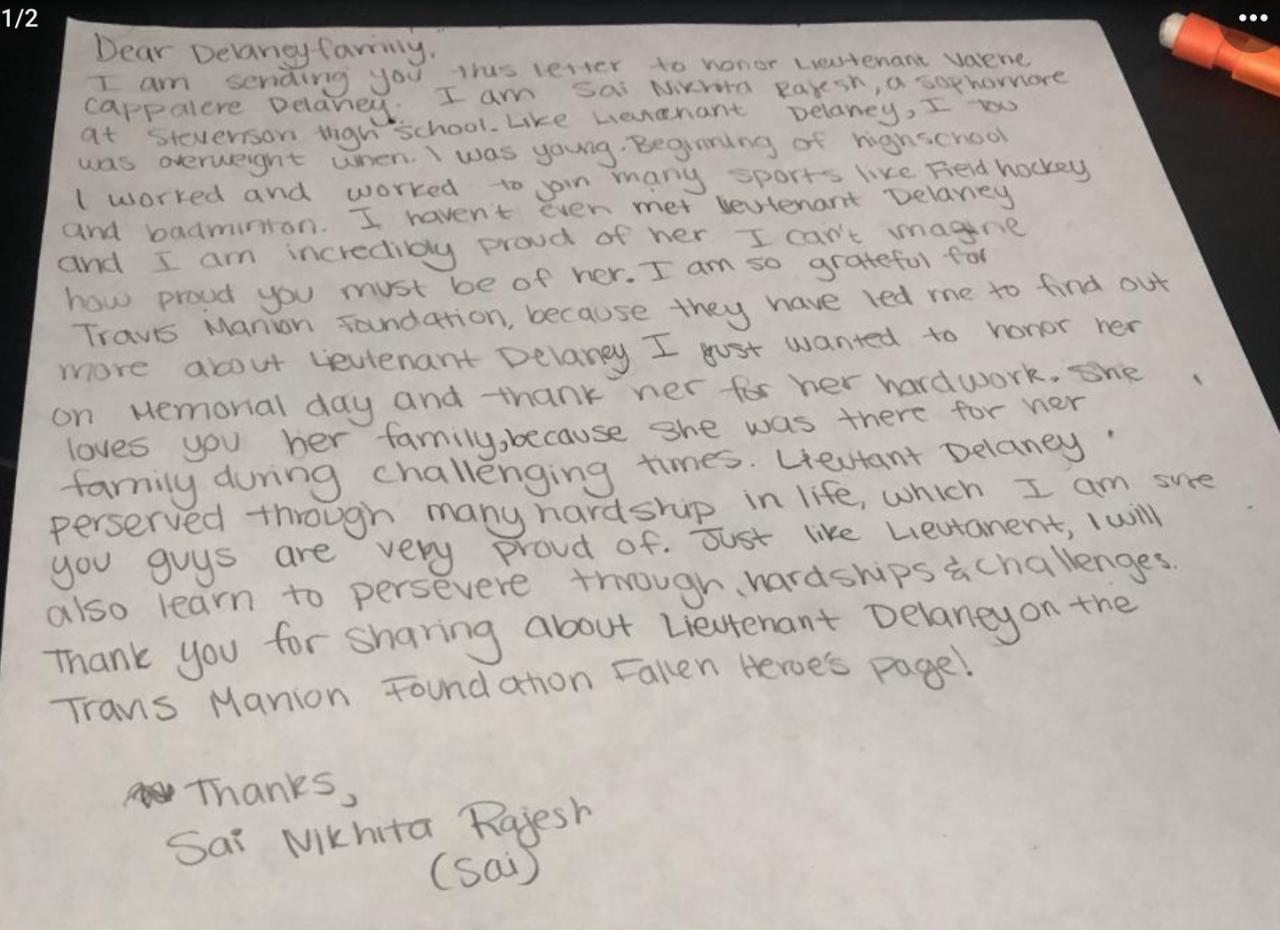 1/2
Dear Delaney family,
I am sending you this letter to honor Lieutenant Valerie
Cappalere Delaney. I am Sai Nikhita Rajesh, a sophomore
at Stevenson High School. Like Lieutenant Delaney, I too
was overweight when I was young. Beginning of highschool
I worked and worked to join many sports like Field hockey
and badminton. I haven't even met lieutenant Delaney
and I am incredibly proud of her. I can't imagine
how proud you must be of her. I am so grateful for
Travis Manion Foundation, because they have led me to find out
more about Lieutenant Delaney I just wanted to honor her
on Memorial day and thank her for her hardwork. She
loves you her family, because she was there for her
family during challenging times. Lieutant Delaney
perserved through many hardship in life, which I am sure
you guys are very proud of. Just like Lieutanent, I will
also learn to persevere through hardships & challenges.
Thank you for sharing about Lieutenant Delaney on the
Travis Manion Foundation Fallen Heroe's page!
Thanks,
Sai Nikhita Rajesh
(Sai)